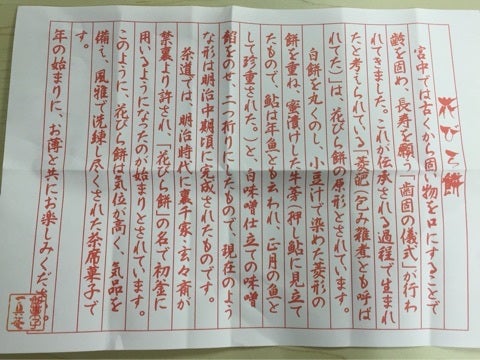 花びら餅
宮中では古くから固い物を口にすることで
齢を固め、長寿を願う「歯固の儀式」が行わ
れてきました。これが伝承される過程で生まれ
たと考えられている「菱葩(包み雑煮とも呼ば
れてた)」は、花びら餅の原形とされています。
白餅を丸くのし、小豆汁で染めた菱形の
餅を重ね、蜜漬けした牛蒡(押し鮎に見立て
たもので、鮎は年魚とも云われ、正月の魚と
して珍重された。)と、白味噌仕立ての味噌
餡をのせ、二つ折りにしたもので、現在のよう
な形は明治中期頃に完成されたものです。
茶道では、明治時代に裏千家・玄々斎が
禁裏より許され、「花びら餅」の名で初釜に
用いるようになったのが始まりとされています。
このように、花びら餅は気位が高く、気品を
備え、風雅で洗練し尽くされた茶席菓子で
す。
年の始まりに、お薄と共にお楽しみくだ